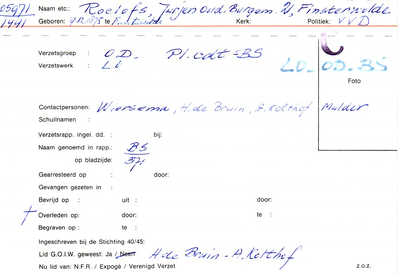 05971 Naam etc.: Roelofs, Jurjen Oud. Burgem. V, Finsterwolde
1441 Geboren: te Finsterwolde Kerk: Politiek: VVD
Verzetsgroep : O.D. Pl.cdt = BS
Verzetswerk : LO
LO-OD-BS
Foto
Contactpersonen: Wiersema, H. de Bruin, A. Kolthof Mulder
Schuilnaam :
Verzetsrapp. ingel. dd. : bij:
Naam genoemd in rapp.: BS
op bladzijde: 371
Gearresteerd op : door:
Gevangen gezeten in :
Bevrijd op : uit : door:
† Overleden op: door: te :
Begraven op : te :
Ingeschreven bij de Stichting 40/45:
Lid G.O.I.W. geweest: Ja / Neen H de Bruin - A. Kolthof
Nu lid van: N.F.R. / Expogé / Verenigd Verzet z.o.z.